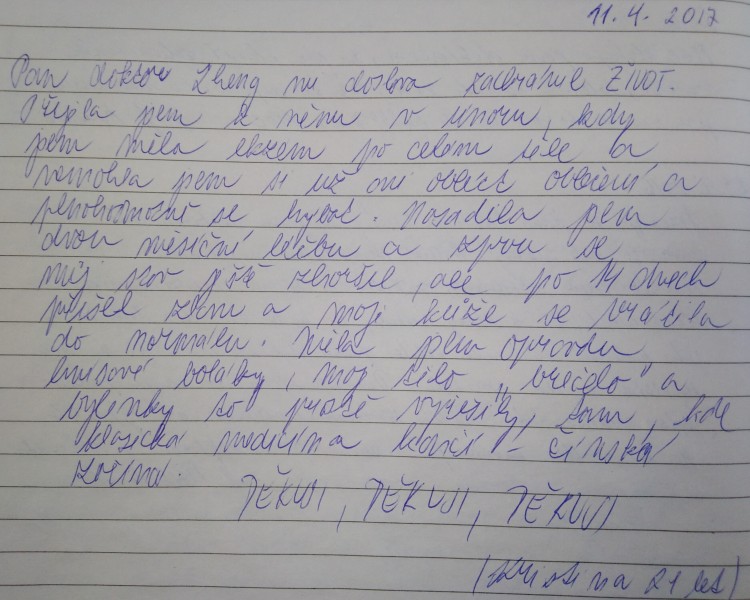 11. 4. 2017
Pan doktor Zheng mi doslova zachránil ŽIVOT.
Přišla jsem k němu v únoru, kdy
jsem měla ekzém po celém těle a
nemohla jsem si už ani obléct oblečení a
plnohodnotně se hýbat. Nasadila jsem
dvou měsíční léčbu a zprvu se
můj stav ještě zhoršil, ale po 14 dnech
přišel zlom a moje kůže se vrátila
do normálu. Měla jsem opravdu
hnisavé boláky, moje tělo "vřelo" a
bylinky to prostě vyřešily, tam, kde
klasická medicína končí - čínská
začíná.
DĚKUJI, DĚKUJI, DĚKUJI
(Kristina 21 let)